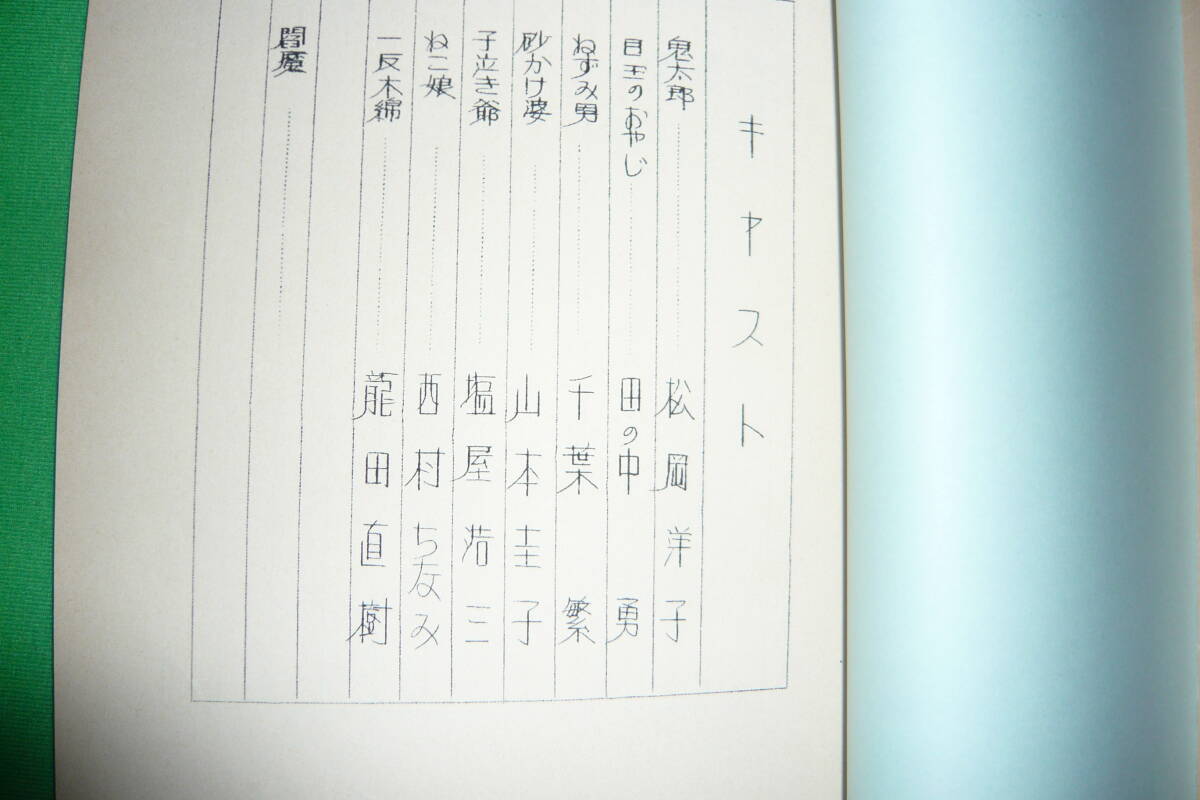 キャスト
鬼太郎………… 松岡洋子
目玉のおやじ………… 田の中勇
ねずみ男………… 千葉繁
砂かけ婆………… 山本圭子
子泣き爺………… 塩屋浩三
ねこ娘………… 西村ちなみ
一反木綿………… 龍田直樹
閻魔…………